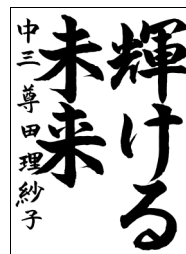 輝ける
未来
中三 尊田理紗子